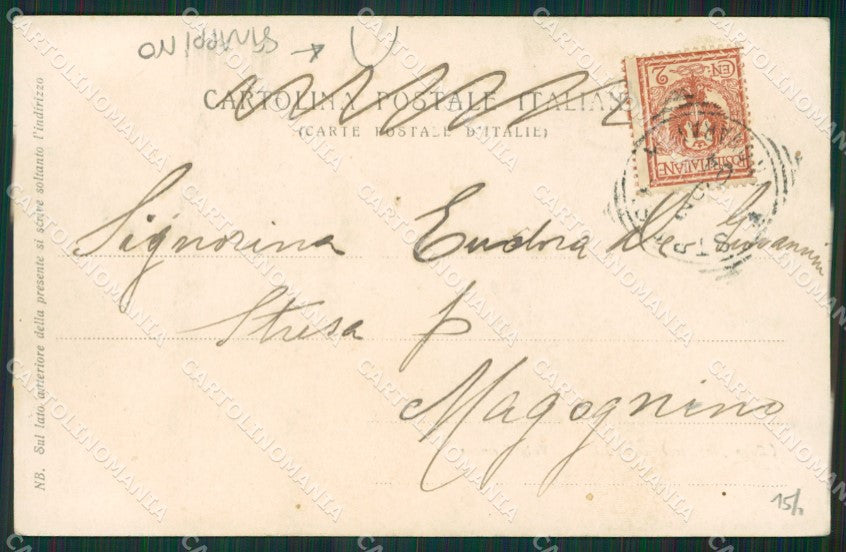 STMAPPINO
CARTOLINA POSTALE ITALIANA
(CARTE POSTALE D'ITALIE)
CEN. 2
POSTE ITALIANE
Signorina Eudora De Giovannini
Stresa p
Magognino
NB. Sul lato anteriore della presente si scrive soltanto l'indirizzo
15/
CARTOLINOMANIA